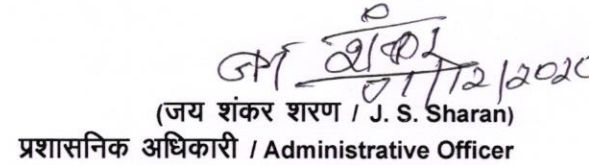 जय शंकर
01/12/2020
(जय शंकर शरण / J. S. Sharan)
प्रशासनिक अधिकारी / Administrative Officer